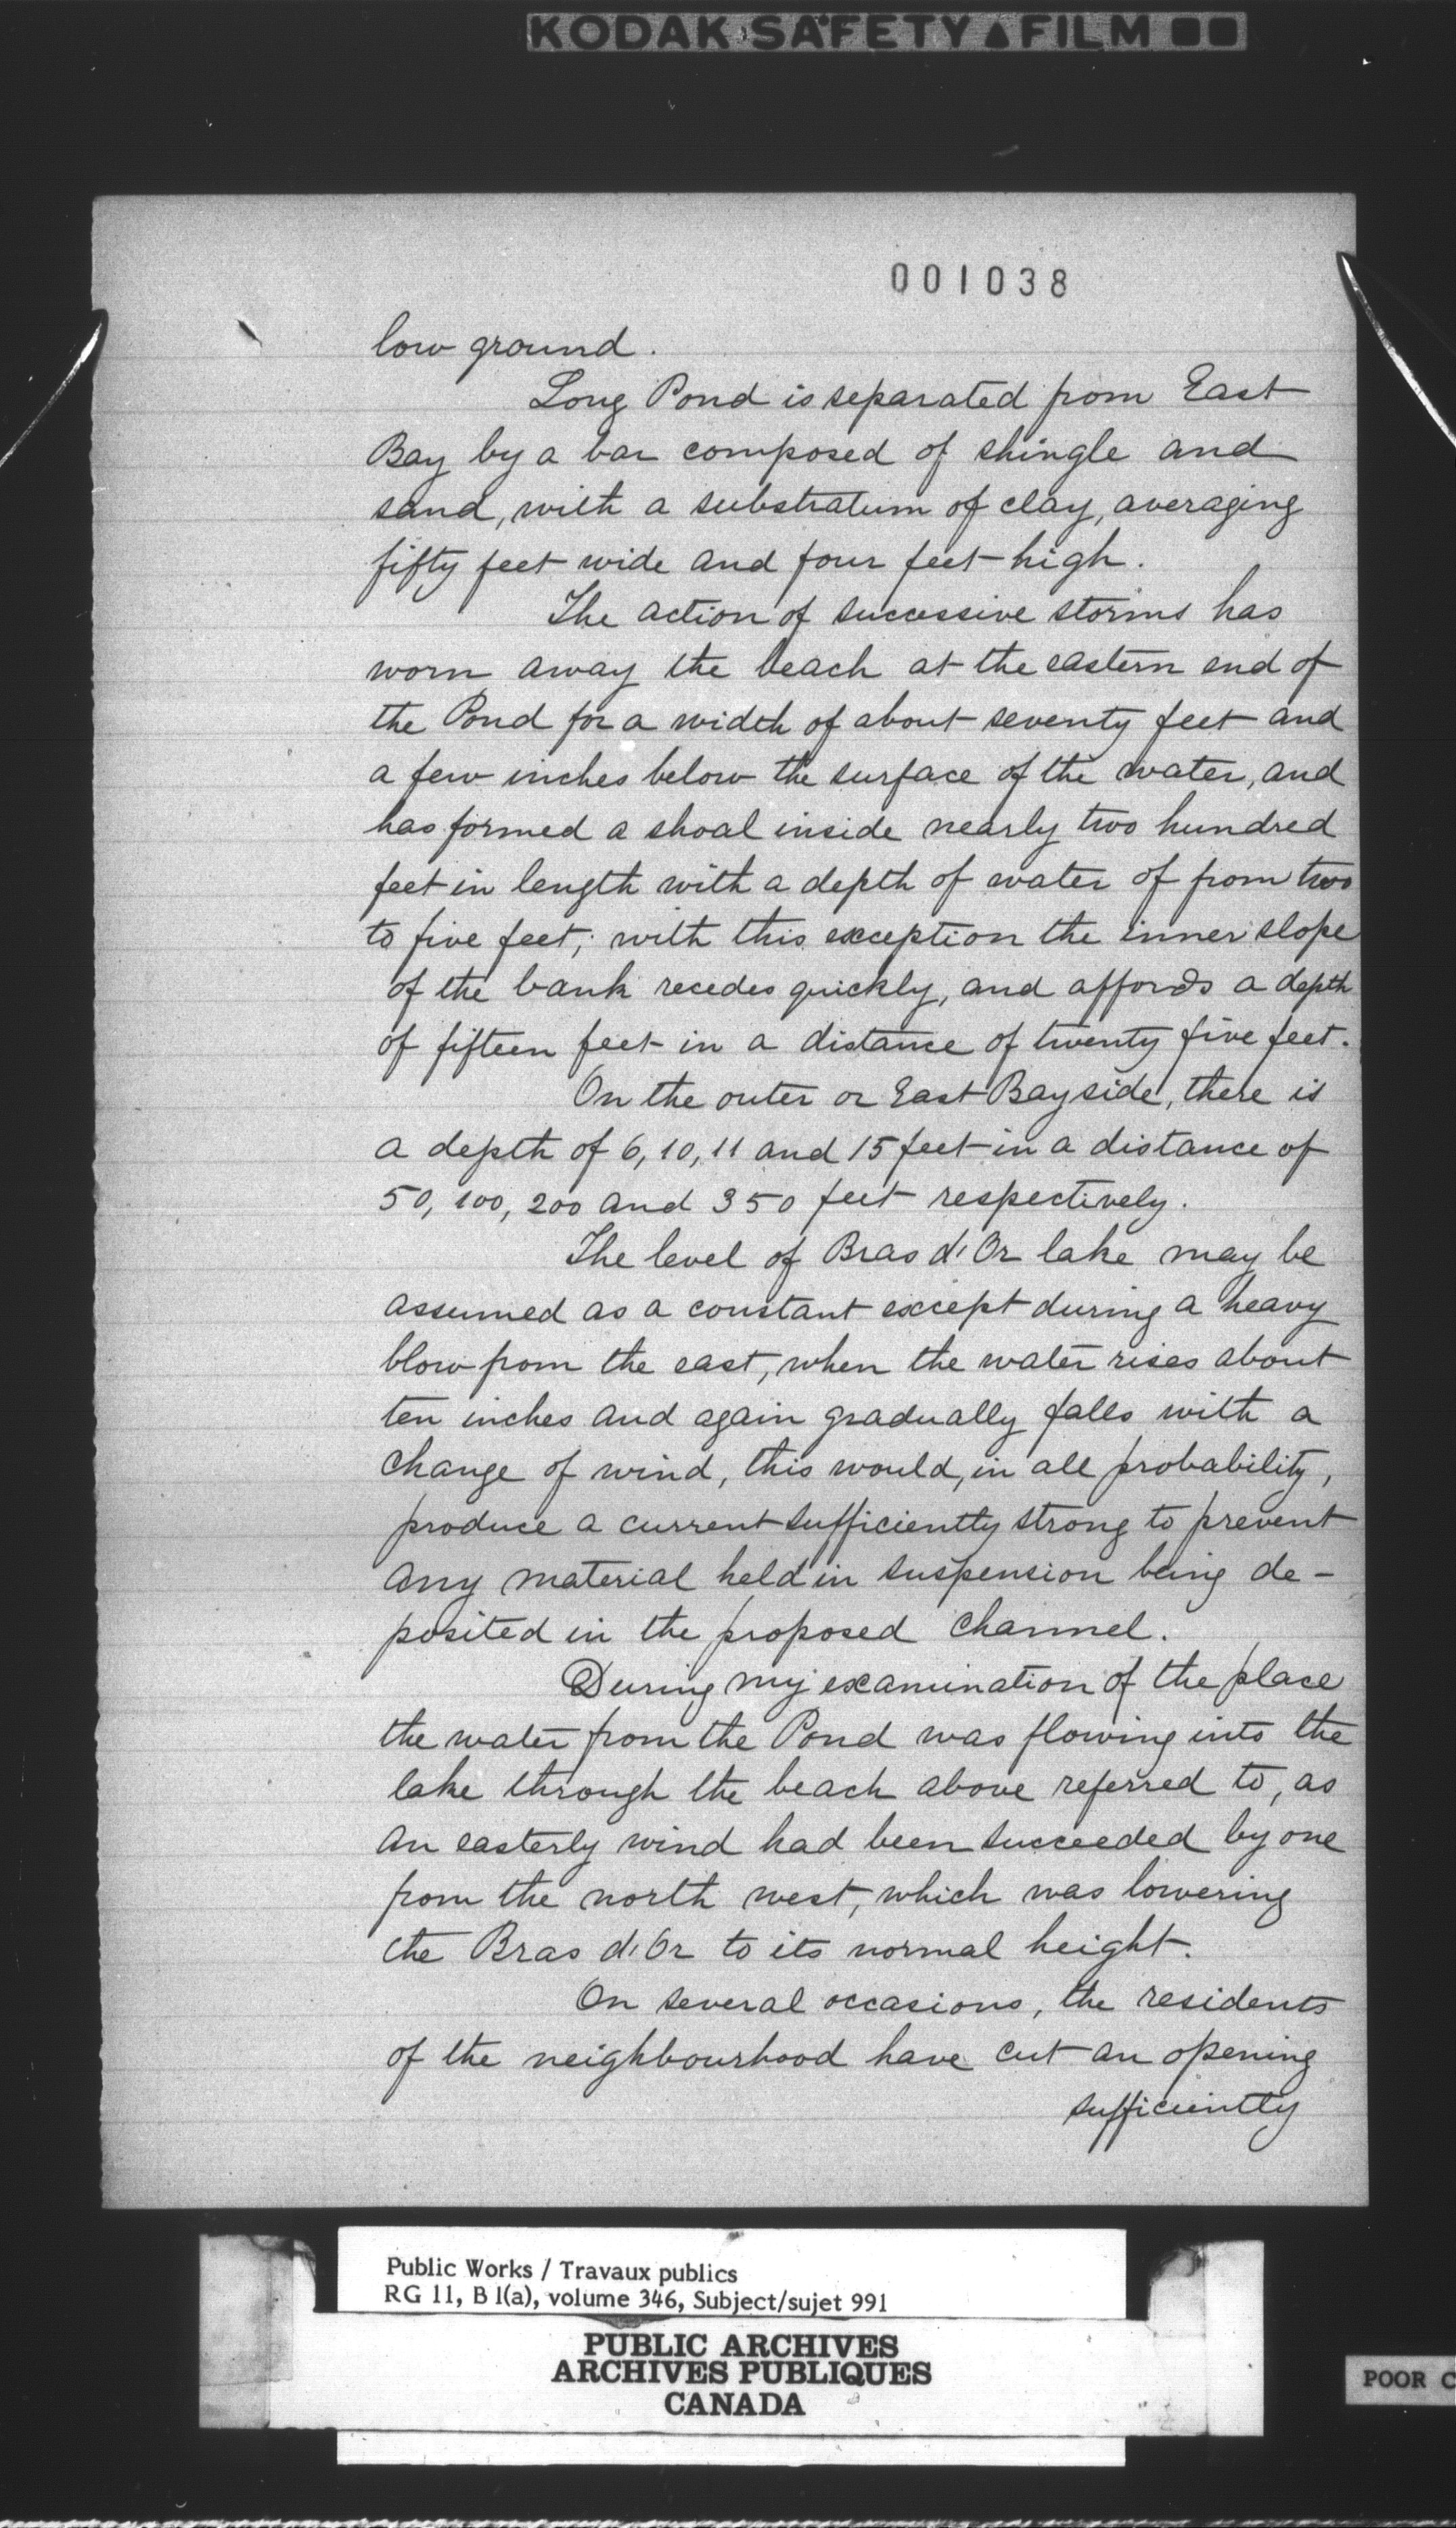 KODAK SAFETY FILM
001038
low ground.
Long Pond is separated from East
Bay by a bar composed of shingle and
sand, with a substratum of clay, averaging
fifty feet wide and four feet high.
The action of successive storms has
worn away the beach at the eastern end of
the Pond for a width of about seventy feet and
a few inches below the surface of the water, and
has formed a shoal inside nearly two hundred
feet in length with a depth of water of from two
to five feet; with this exception the inner slope
of the bank recedes quickly, and affords a depth
of fifteen feet in a distance of twenty five feet.
On the outer or East Bay side, there is
a depth of 6, 10, 11 and 15 feet in a distance of
50, 100, 200 and 350 feet respectively.
The level of Bras d'Or lake may be
assumed as a constant except during a heavy
blow from the east, when the water rises about
ten inches and again gradually falls with a
change of wind, this would, in all probability,
produce a current sufficiently strong to prevent
any material held in suspension being de-
posited in the proposed channel.
During my examination of the place
the water from the Pond was flowing into the
lake through the beach above referred to, as
an easterly wind had been succeeded by one
from the north west, which was lowering
the Bras d'Or to its normal height.
On several occasions, the residents
of the neighbourhood have cut an opening
sufficiently
Public Works / Travaux publics
RG 11, B1(a), volume 346, Subject/sujet 991
PUBLIC ARCHIVES
ARCHIVES PUBLIQUES
CANADA
POOR C